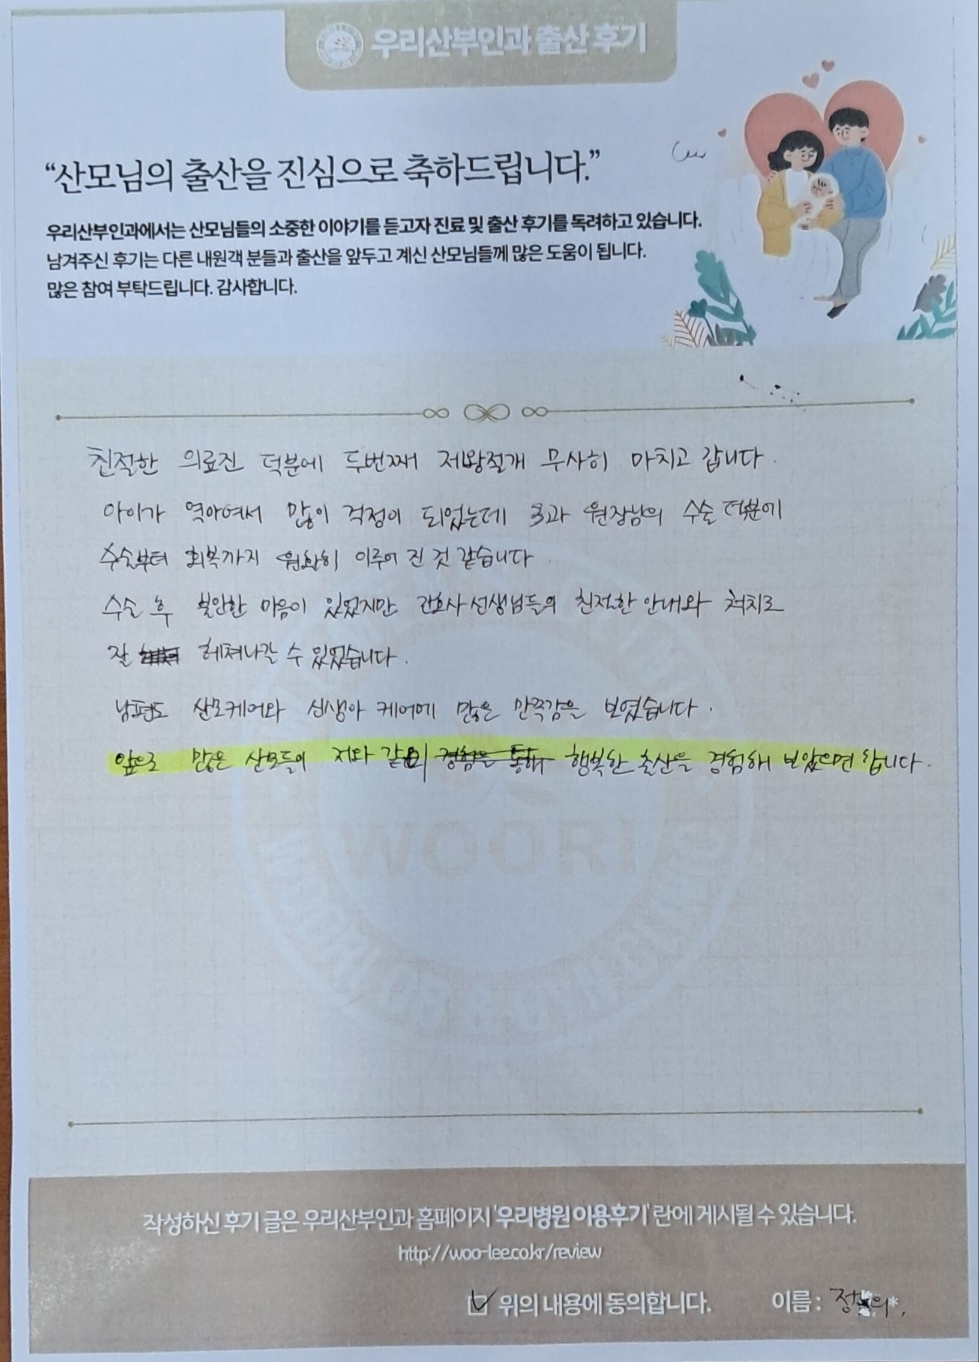 우리산부인과 출산 후기
“산모님의 출산을 진심으로 축하드립니다.”
우리산부인과에서는 산모님들의 소중한 이야기를 듣고자 진료 및 출산 후기를 독려하고 있습니다.
남겨주신 후기는 다른 내원객 분들과 출산을 앞두고 계신 산모님들께 많은 도움이 됩니다.
많은 참여 부탁드립니다. 감사합니다.
친절한 의료진 덕분에 두번째 제왕절개 무사히 마치고 갑니다.
아이가 역아여서 많이 걱정이 되었는데 3과 원장님의 수술 덕분에
수술부터 회복까지 원활히 이루어 진 것 같습니다.
수술 후 불안한 마음이 있었지만 간호사 선생님들의 친절한 안내와 처치로
잘 헤쳐나갈 수 있었습니다.
남편도 산모케어와 신생아 케어에 많은 만족감을 보였습니다.
앞으로 많은 산모들이 저와 같이 경험을 통해 행복한 출산을 경험해 보았으면 합니다.
WOORI
WOORI OB & GYN CLINIC
작성하신 후기 글은 우리산부인과 홈페이지 '우리병원 이용후기' 란에 게시될 수 있습니다.
http://woo-lee.co.kr/review
위의 내용에 동의합니다. 이름 :